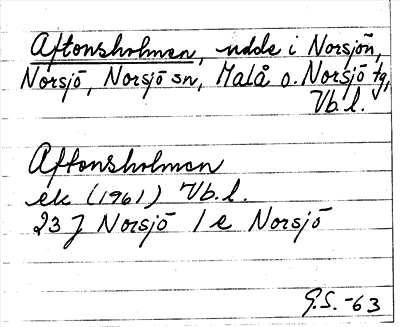 Aftonsholmen, udde i Norsjön,
Norsjö, Norsjö sn, Malå o. Norsjö tg,
Vb.l.
Aftonsholmen
ek (1961) Vb.l.
23 J Norsjö 1 e Norsjö
G.S. -63